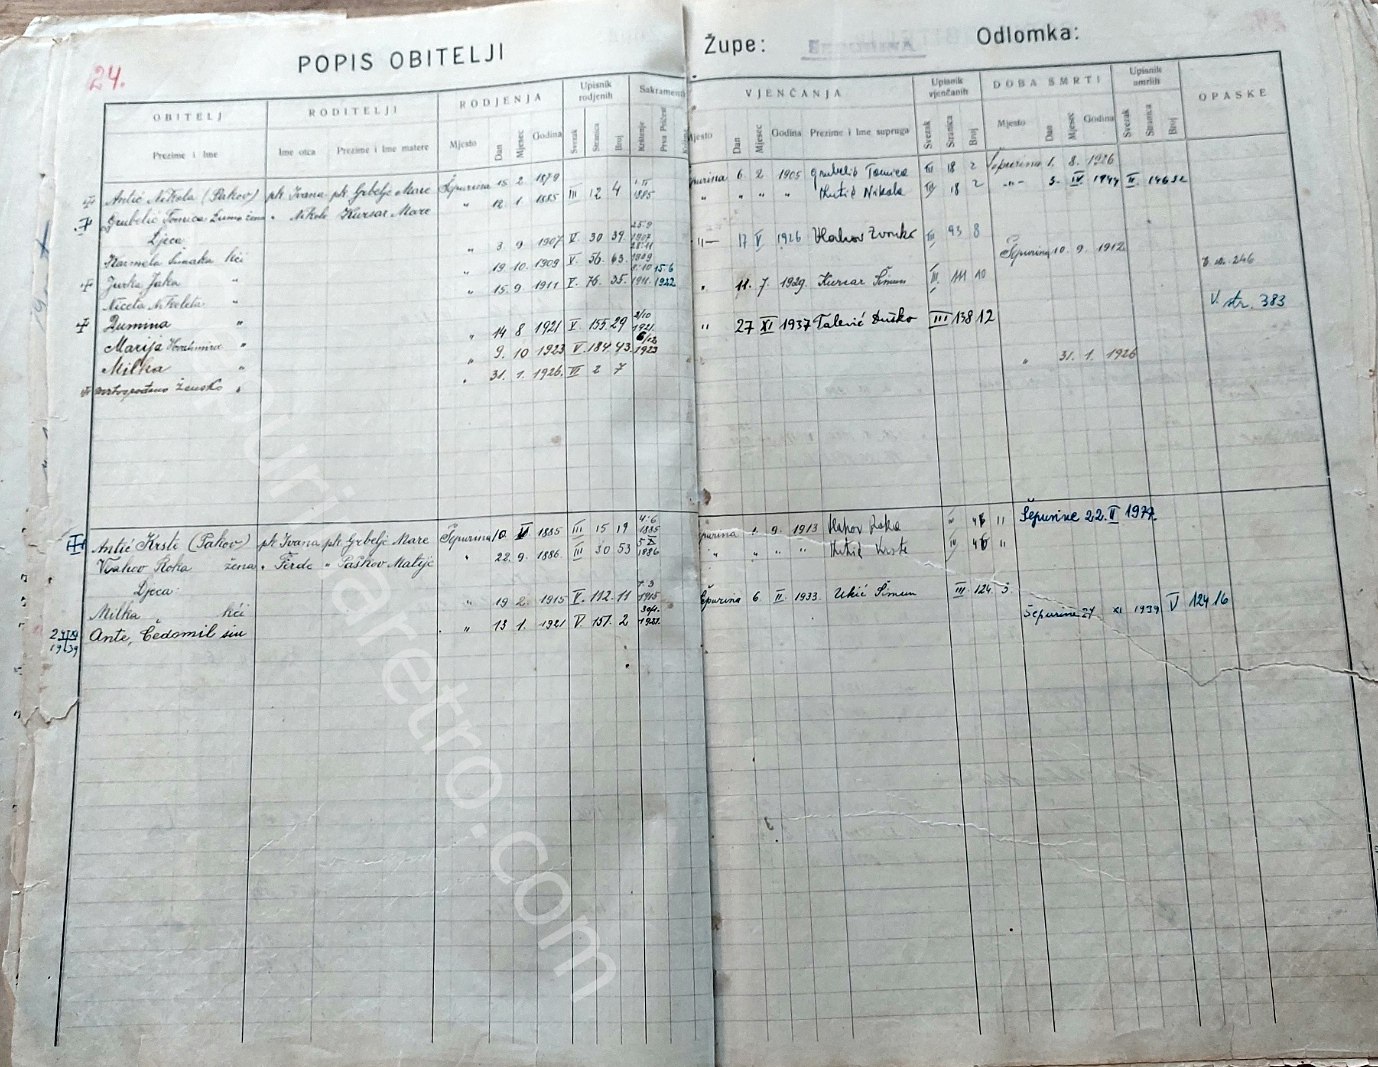 24.
POPIS OBITELJI Župe: Odlomka:
OBITELJ RODITELJI RODJENJA Upisnik rodjenih Sakramenti VJENČANJA Upisnik vjenčanih DOBA SMRTI Upisnik umrlih OPASKE
Prezime i Ime Ime otca Prezime i Ime matere Mjesto Dan Mjesec Godina Svezak Stranica Broj Krštenje Prva Pričest Mjesto Dan Mjesec Godina Prezime i Ime supruga Svezak Stranica Broj Mjesto Dan Mjesec Godina Svezak Stranica Broj
Antić Nikola (Pakov) pk Ivana pk Grbelje Mare Šepurina 15. 2. 1879 purina 6 2. 1905 Grubelić Tomica III 18 2 Šepurina 1. 8. 1926
Grubelić Tomica žena " Nikole Kursar Mare " 12. 1. 1885 III 12 4 1885 " " " " Antić Nikola III 18 2 " 3. IV. 1944 II.
Djeca
Karmela kći " 3. 9. 1907 V. 30 39 1907 " 17 V 1926 Vlahov Zvonko III 93 8
Jurka Jaka " " 19. 10. 1909 V. 56. 63. 1909 Šepurina 10. 9. 1912.
Niceta Nikoleta " " 15. 9. 1911 V. 76. 35. 1911 15.6 1922 " 11. 7. 1929. Kursar Šimun III. 111 10 246
Dumina " V. str. 383
Marija " " 14 8 1921 V 155 29 2/10 1921. " 27 XI 1937 Talević Duško III 138 12
Milka " " 9. 10 1923 V. 184 43. 1923
mrtvorođeno žensko " " 31. 1. 1926. VI 2 7 " 31. 1. 1926
Antić Krste (Pakov) pk Ivana pk Grbelje Mare Šepurina 10. V 1885 III 15 19 4.6 1885 purina 1. 9. 1913 Vlahov Roka IV " Šepurine 22. II 1972
Vlahov Roka žena " Ferde " Paškov Matije " 22. 9. 1886. III 30 53 1886 " " " " Antić Krste IV "
Djeca
Milka kći " 19 2. 1915 V. 112. 11 1915 Šepurina 6. II 1933. Ukić Šimun III 124. 5.
Ante, Čedomil sin " 13 1. 1921 V 151. 2 Šepurine 27 XI 1939 V 124 16
1939
sepurinaretro.com